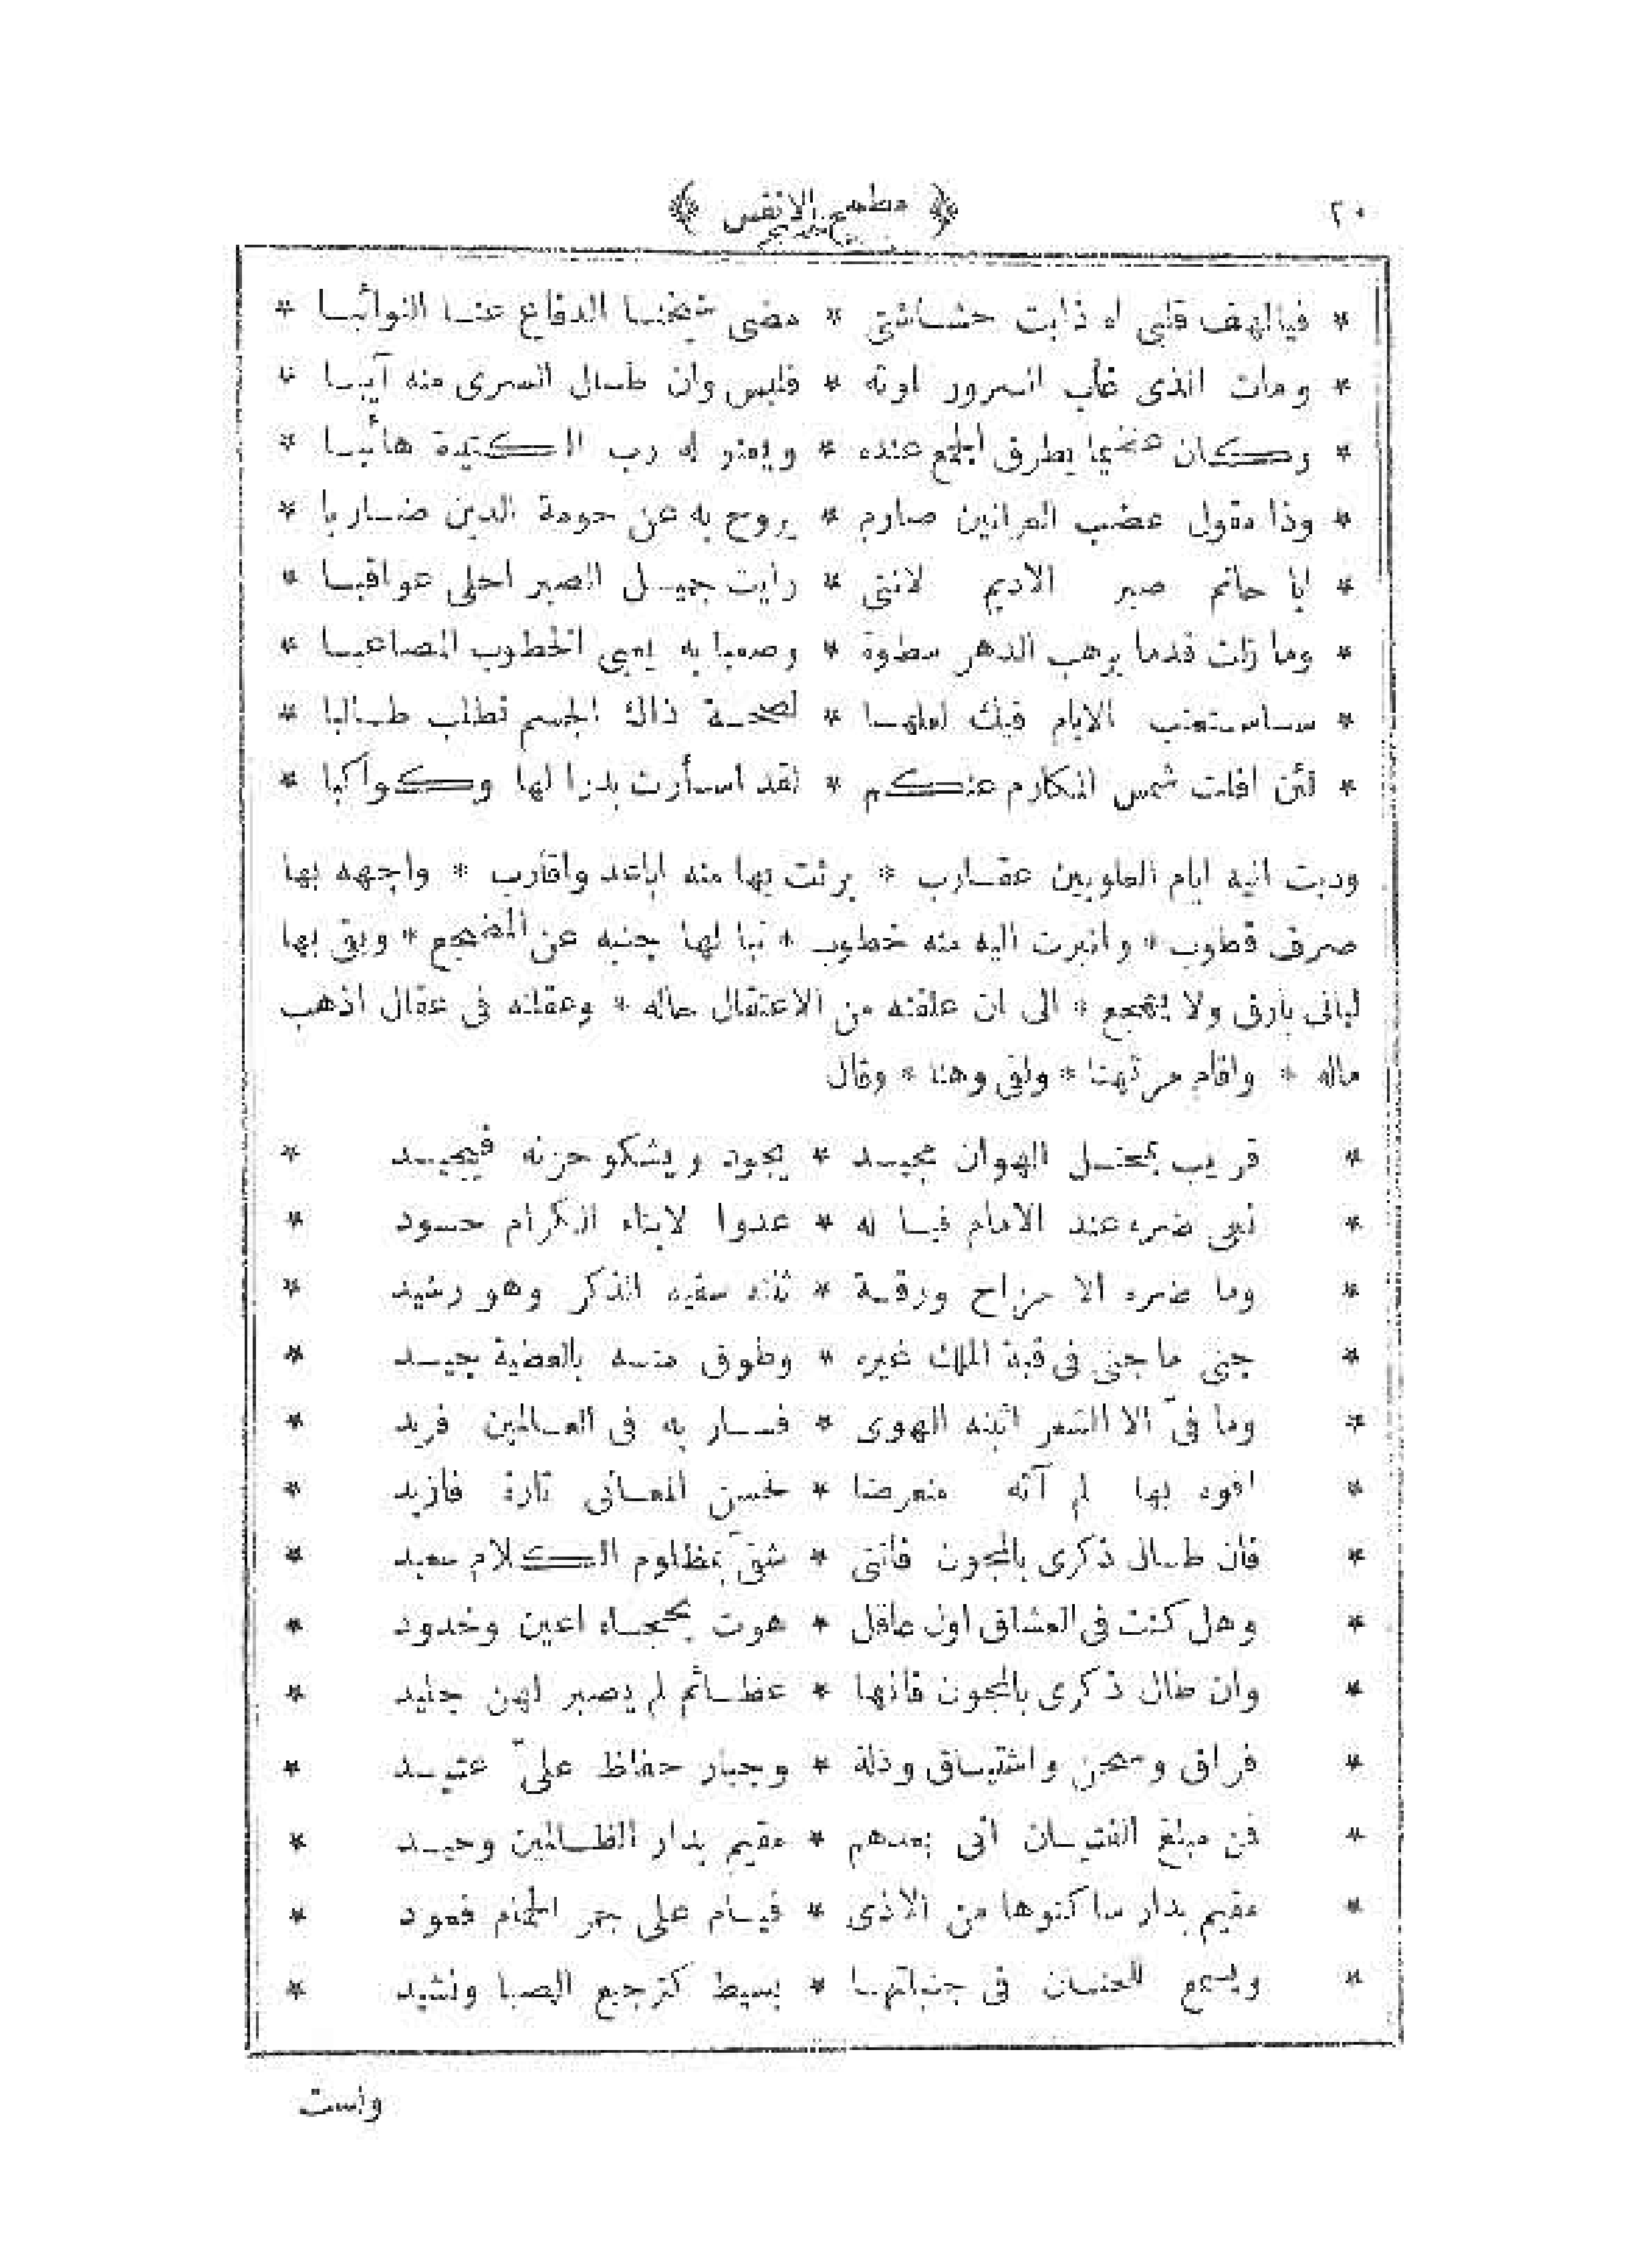 ٢٠ ﴿ مطمح الانفس ﴾
* فيالهف قلبي اه ذابت حشاشتى * مضى شيخنا الدفاع عنا النوائبا *
* ومات الذى غاب السرور لموته * فليس وان طال السرى منه آيبا *
* وكان عظيما يطرق الجمع عنده * ويعنو له رب الكتيبة هائبا *
* وذا مقول عضب الغرارين صارم * يروح به عن حومة الدين ضاربا *
* ابا حاتم صبر الاديم لاننى * رايت جميل الصبر احلى عواقبا *
* وما زلت قدما يرهب الدهر سطوة * وصعبا به يعيى الخطوب المصاعبا *
* ساستعتب الايام فيك لعلها * لصحة ذاك الجسم تطلب طالبا *
* لئن افلت شمس المكارم عنكم * لقد اسأرت بدرا لها وكواكبا *
ودبت اليه ايام العلويين عقارب * برئت بها منه اباعد واقارب * واجهه بها
صرف قطوب * وانبرت اليه منه خطوب * نبا لها جنبه عن المضجع * وبقى بها
ليالى يأرق ولا يهجع * الى ان علقته من الاعتقال حاله * وعقلته فى عقال اذهب
ماله * واقام مرتهنا * ولقى وهنا * وقال
* قريب بمحتل الهوان مجيد * يجود ويشكو حزنه فيجيد *
* نعى ضره عند الامام فيا له * عدوا لابناء الكرام حسود *
* وما ضره الا مزاح ورقة * ثنته سفيه الذكر وهو رشيد *
* جنى ما جنى فى قبة الملك غيره * وطوق منه بالعظيمة جيد *
* وما فىّ الا الشعر اثبته الهوى * فسار به فى العالمين فريد *
* افوه بها لم آته متعرضا * لحسن المعانى تارة فازيد *
* فان طال ذكرى بالمجون فاننى * شقىّ بمظلوم الكلام سعيد *
* وهل كنت فى العشاق اول عاقل * هوت بحجاه اعين وخدود *
* وان طال ذكرى بالمجون فانها * عظائم لم يصبر لهن جليد *
* فراق وسجن واشتياق وذلة * وجبار حفاظ علىّ عتيد *
* فمن مبلغ الفتيان انى بعدهم * مقيم بدار الظالمين وحيد *
* مقيم بدار ساكنوها من الاذى * قيام على جمر الحمام قعود *
* ويسمع للجنان فى جنباتها * بسيط كترجيع الصبا ونشيد *
ولست